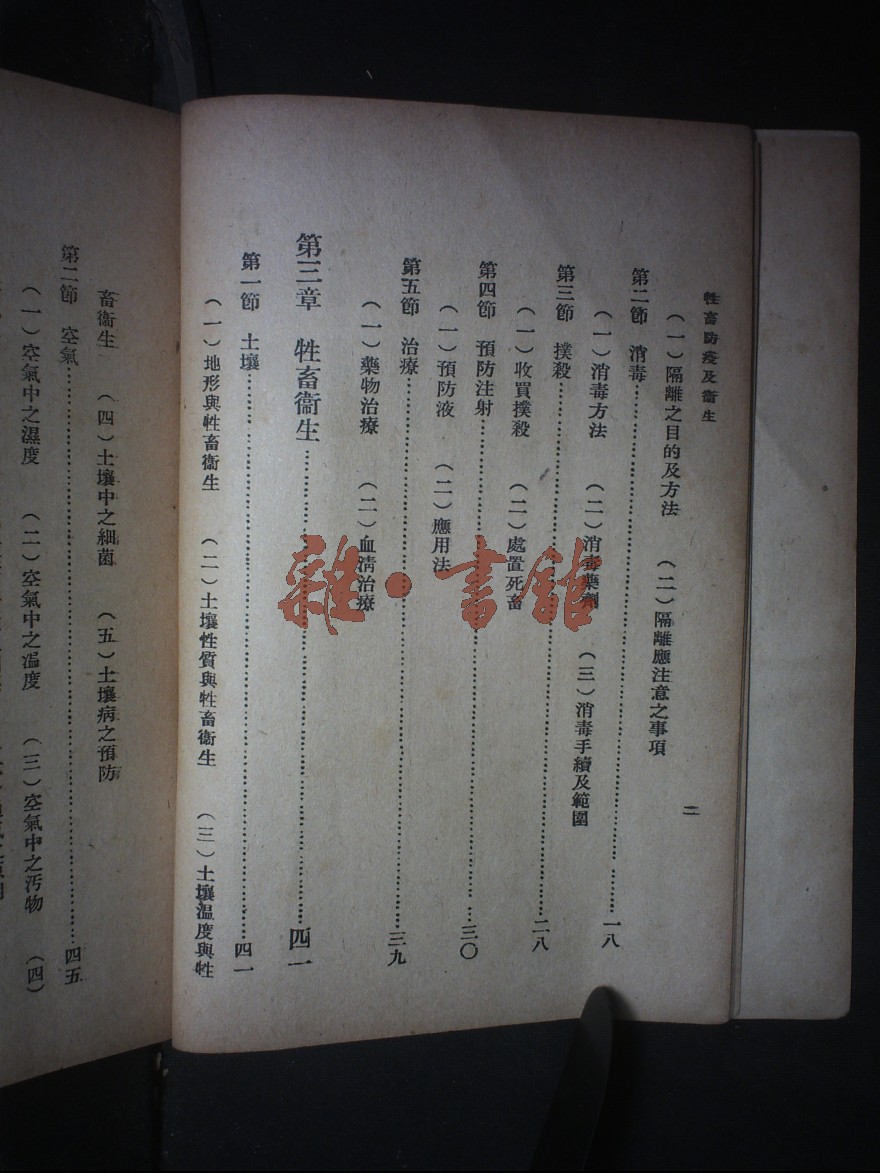 牲畜防疫及衞生
二
（一）隔離之目的及方法　（二）隔離應注意之事項
第二節　消毒……一八
（一）消毒方法　（二）消毒藥劑　（三）消毒手續及範圍
第三節　撲殺……二八
（一）收買撲殺　（二）處置死畜
第四節　預防注射……三〇
（一）預防液　（二）應用法
第五節　治療……三九
（一）藥物治療　（二）血清治療
第三章　牲畜衞生……四一
第一節　土壤……四一
（一）地形與牲畜衞生　（二）土壤性質與牲畜衞生　（三）土壤溫度與牲
畜衞生　（四）土壤中之細菌　（五）土壤病之預防
第二節　空氣……四五
（一）空氣中之濕度　（二）空氣中之溫度　（三）空氣中之汚物　（四）
雜·書館